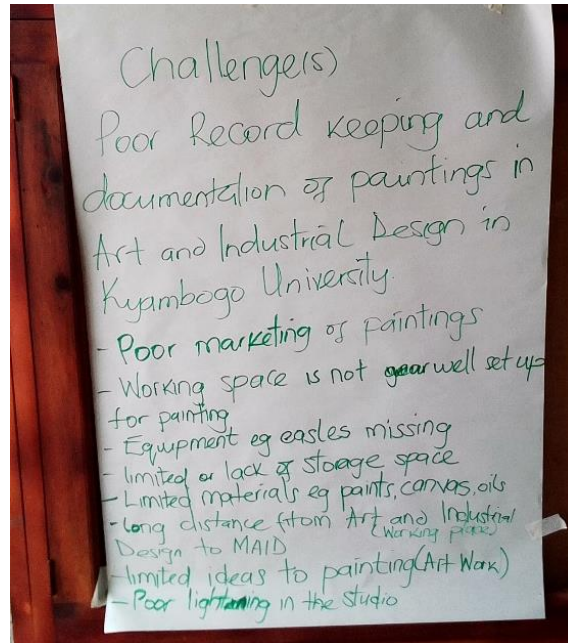 Challenge(s)
Poor Record keeping and
documentation of paintings in
Art and Industrial Design in
Kyambogo University.
- Poor marketing of paintings
- Working space is not well set up
for painting
- Equipment eg easles missing
- limited or lack of storage space
- Limited materials eg paints, canvas, oils
- long distance from Art and Industrial
(Working place)
Design to MAID
- limited ideas to painting (Art Work)
- Poor lightening in the studio